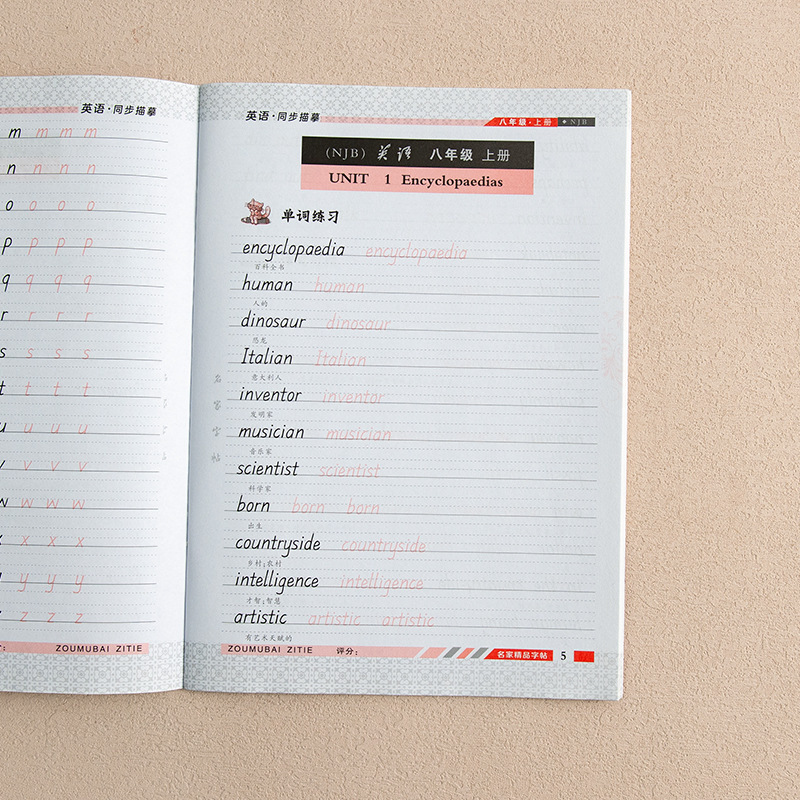 英语·同步描摹
m m m m
n n n n
o o o o
p p p p
q q q q
r r r r
s s s s
t t t t
u u u u
v v v v
w w w w
x x x
y y y
z z z
ZOUMUBAI ZITIE
英语·同步描摹
八年级·上册 ◆NJB
(NJB) 英语 八年级 上册
UNIT 1 Encyclopaedias
单词练习
encyclopaedia encyclopaedia
百科全书
human human
人的
dinosaur dinosaur
恐龙
Italian Italian
意大利人
inventor inventor
发明家
musician musician
音乐家
scientist scientist
科学家
born born born
出生
countryside countryside
乡村;农村
intelligence intelligence
才智;智慧
artistic artistic artistic
有艺术天赋的
名家字帖
ZOUMUBAI ZITIE 评分:
名家精品字帖 5